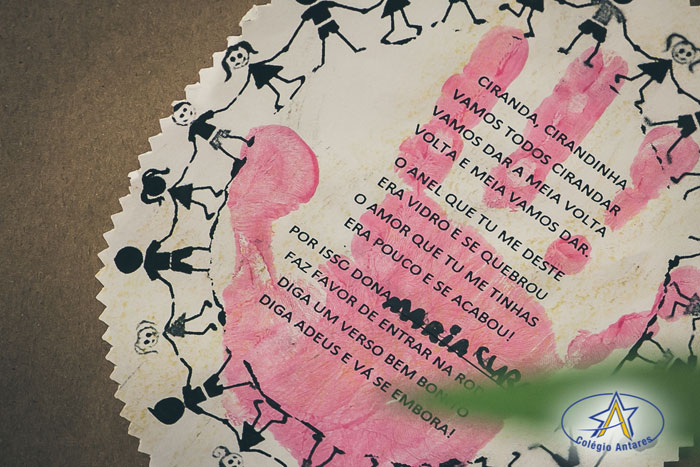 CIRANDA, CIRANDINHA
VAMOS TODOS CIRANDAR
VAMOS DAR A MEIA VOLTA
VOLTA E MEIA VAMOS DAR.
O ANEL QUE TU ME DESTE
ERA VIDRO E SE QUEBROU
O AMOR QUE TU ME TINHAS
ERA POUCO E SE ACABOU!
POR ISSO DONA MARIA
FAZ FAVOR DE ENTRAR NA
DIGA UM VERSO BEM BONITO
DIGA ADEUS E VÁ SE EMBORA!
Colégio Antares